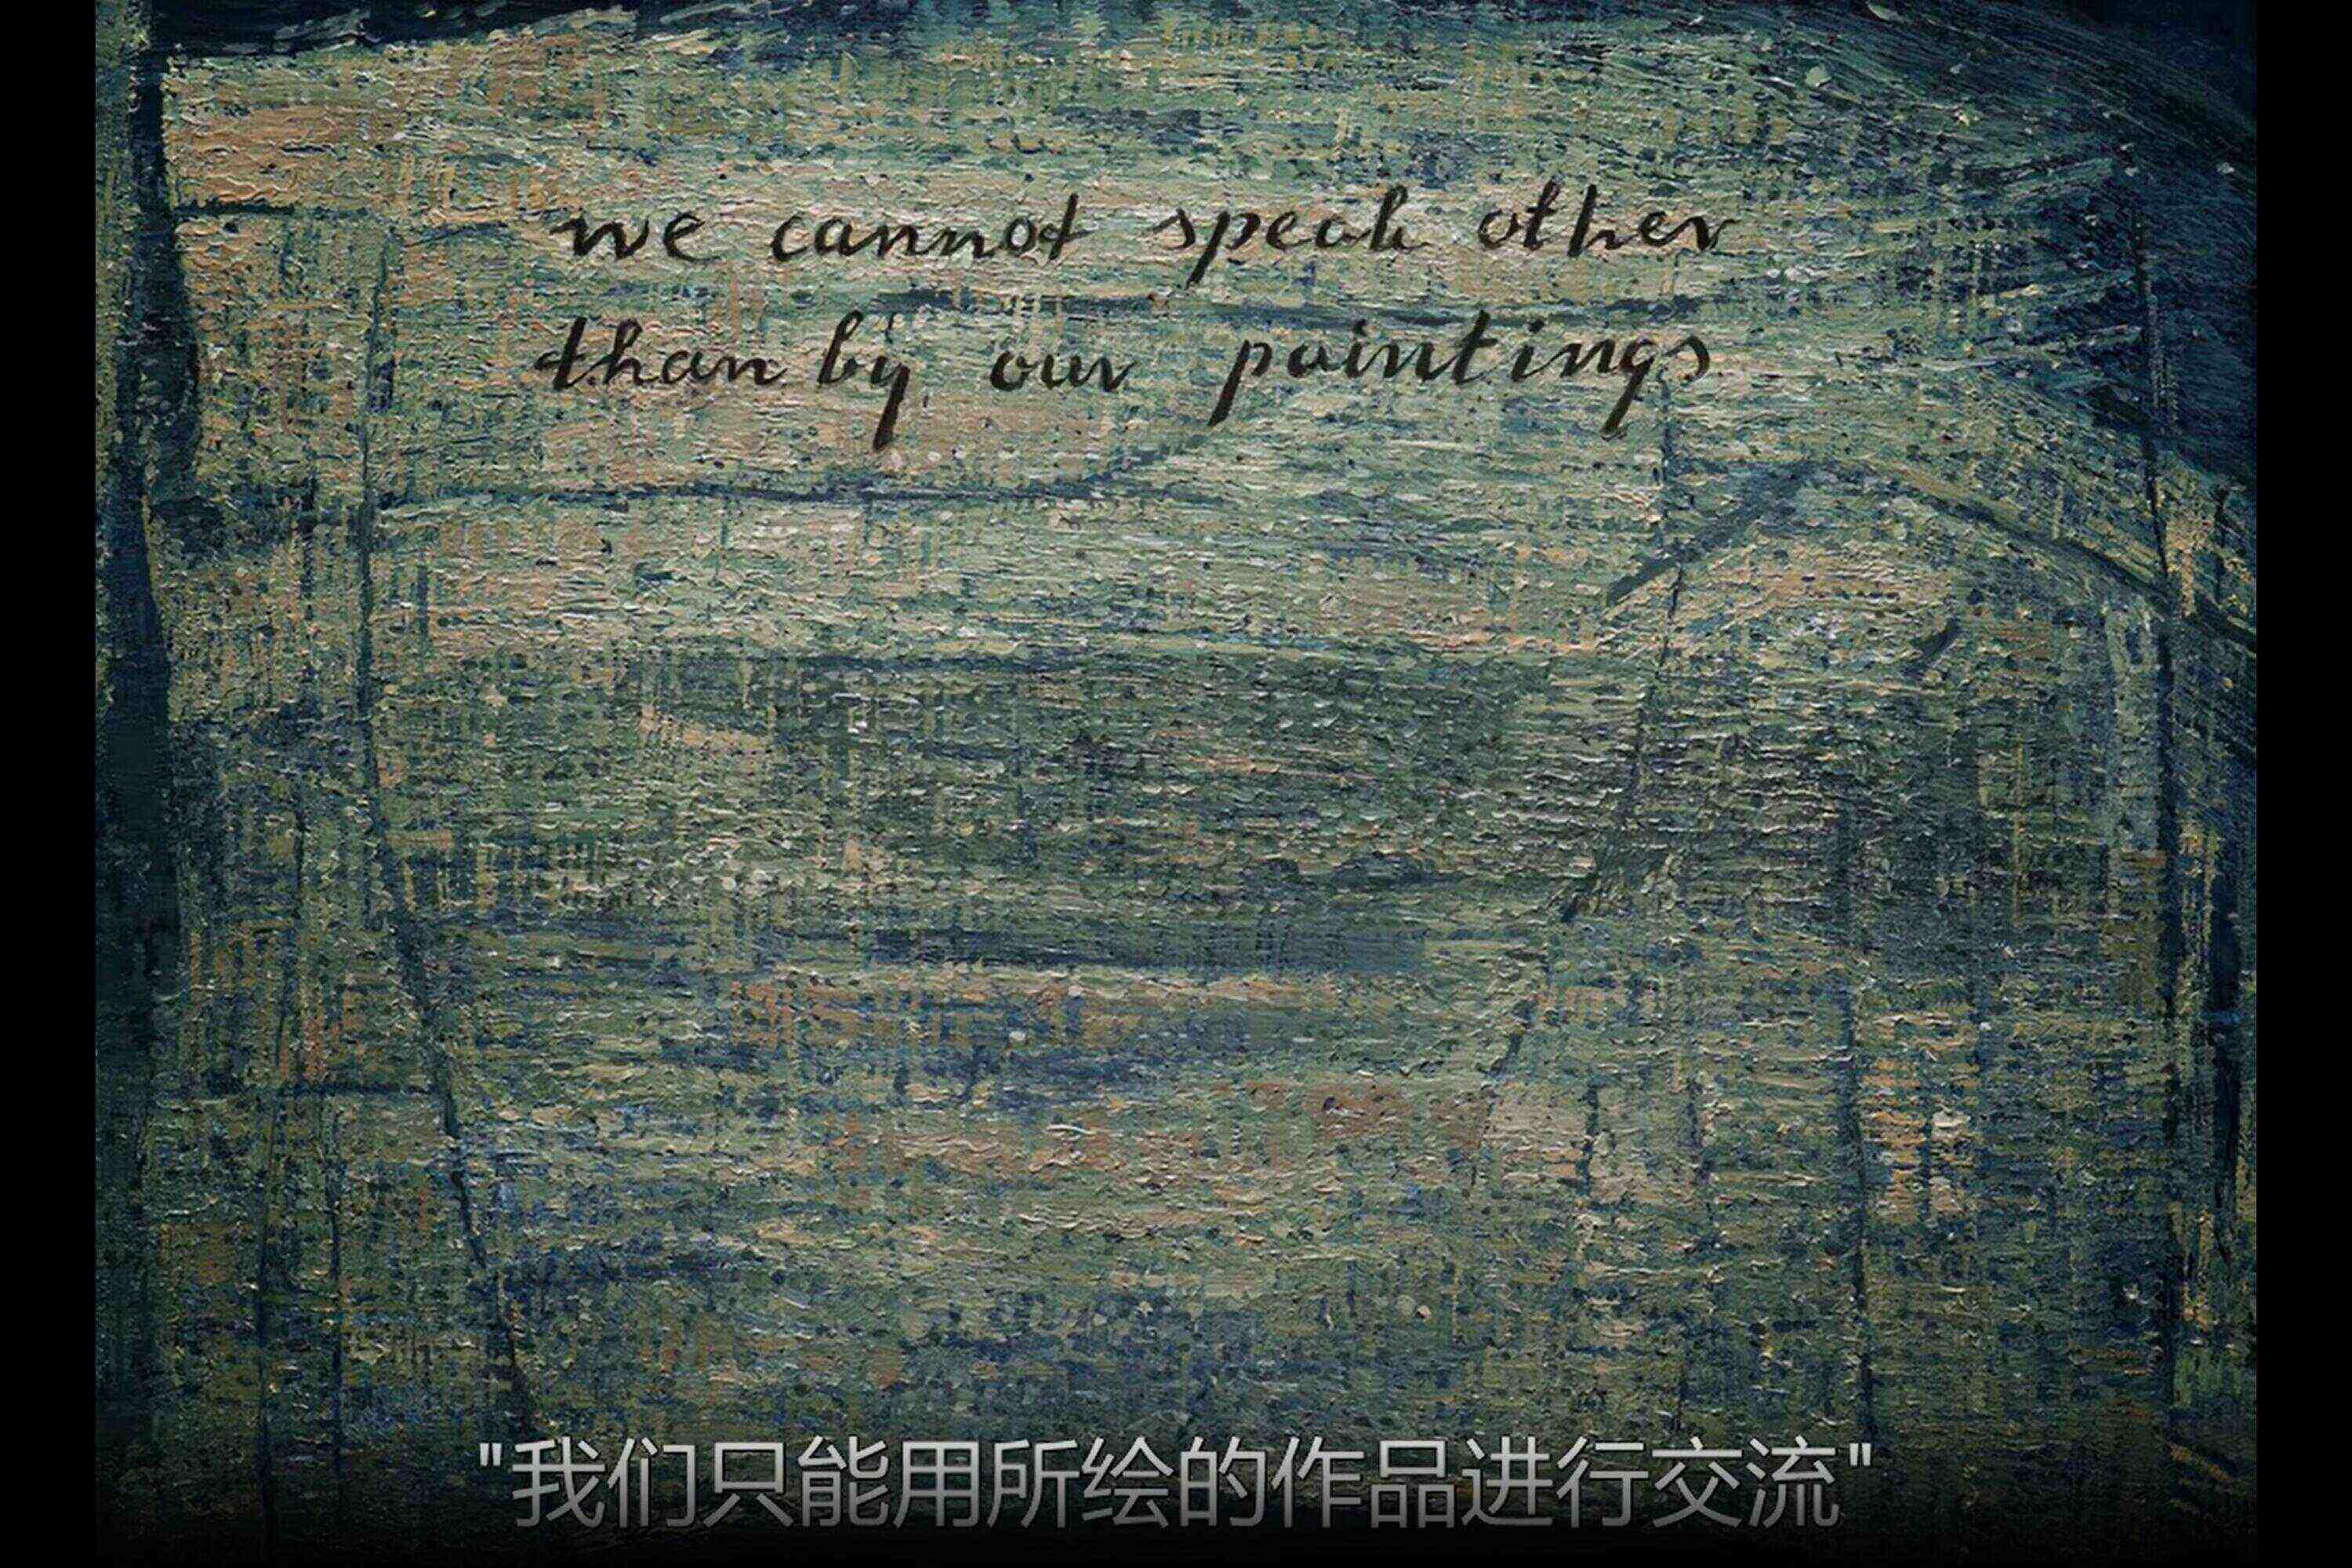 we cannot speak other
than by our paintings
"我们只能用所绘的作品进行交流"